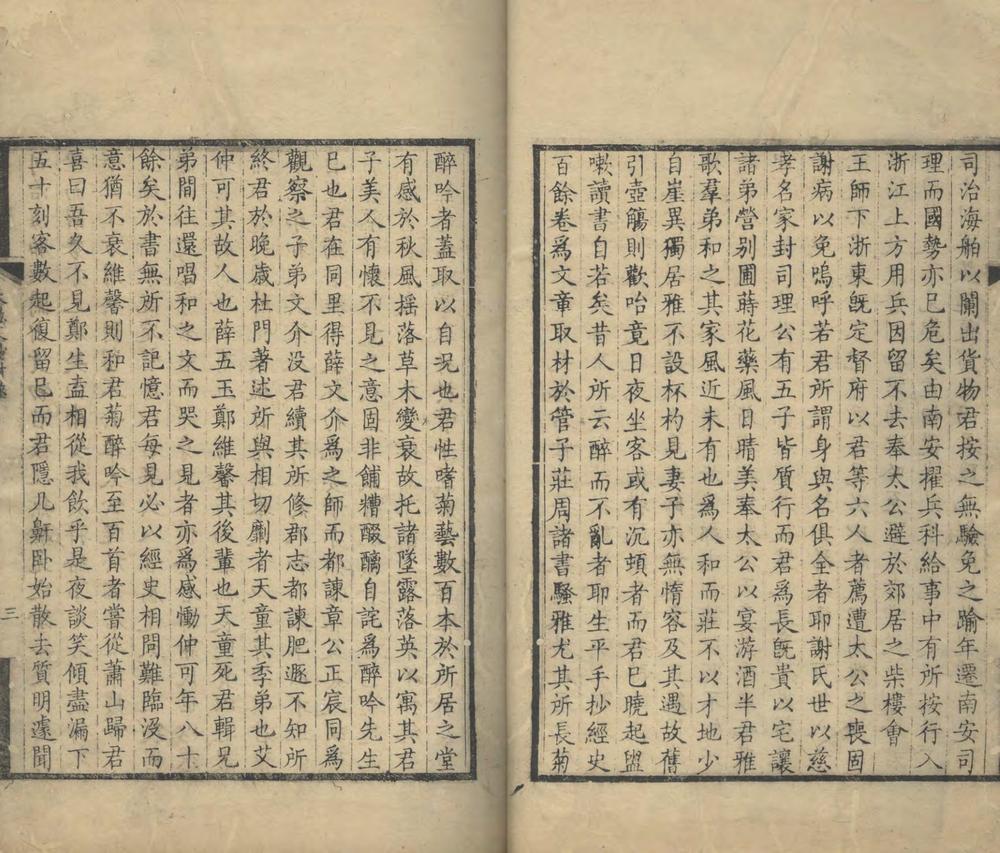 司治海舶以闌出貨物君按之無驗免之踰年遷南安司
理而國勢亦已危矣由南安擢兵科給事中有所按行入
浙江上方用兵因留不去奉太公避於郊居之柴樓會
王師下浙東旣定督府以君等六人者薦遭太公之喪固
謝病以免嗚呼若君所謂身與名俱全者耶謝氏世以慈
孝名家封司理公有五子皆質行而君爲長旣貴以宅讓
諸弟營别圃蒔花藥風日晴美奉太公以宴游酒半君雅
歌羣弟和之其家風近未有也爲人和而莊不以才地少
自崖異獨居雅不設杯杓見妻子亦無惰容及其遇故舊
引壺觴則歡咍竟日夜坐客或有沉頓者而君已曉起盥
嗽讀書自若矣昔人所云醉而不亂者耶生平手抄經史
百餘卷爲文章取材於管子莊周諸書騷雅尤其所長菊
醉吟者蓋取以自况也君性嗜菊藝數百本於所居之堂
有感於秋風摇落草木變衰故托諸墜露落英以寓其君
子美人有懷不見之意固非餔糟醊醨自詫爲醉吟先生
已也君在同里得薛文介爲之師而都諫章公正宸同爲
觀察之子弟文介没君續其所修郡志都諫肥遯不知所
終君於晚歲杜門著述所與相切劘者天童其季弟也艾
仲可其故人也薛五玉鄭維馨其後輩也天童死君輯兄
弟間往還唱和之文而哭之見者亦爲感慟仲可年八十
餘矣於書無所不記憶君每見必以經史相問難臨沒而
意猶不衰維馨則和君菊醉吟至百首者嘗從蕭山歸君
喜曰吾久不見鄭生盍相從我飲乎是夜談笑傾盡漏下
五十刻客數起復留已而君隱几鼾卧始散去質明遽聞
三